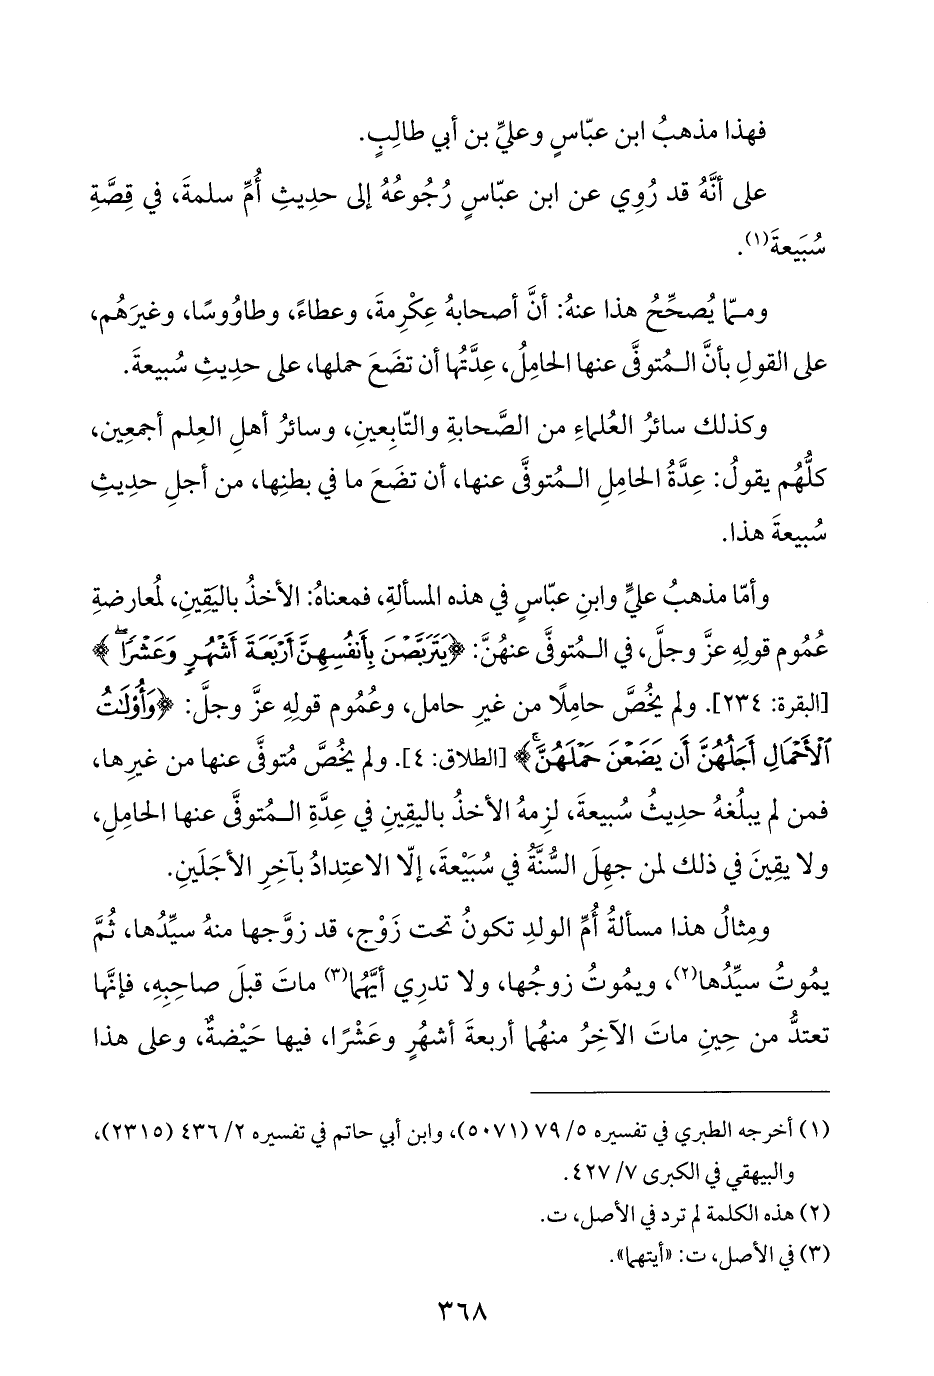 فهذا مذهبُ ابن عبّاسٍ وعليِّ بن أبي طالِبٍ.
على أنَّهُ قد رُوِي عن ابن عبّاسٍ رُجُوعُهُ إلى حدِيثِ أُمِّ سلمةَ، في قِصَّةِ
سُبَيعةَ(١).
وممّا يُصحِّحُ هذا عنهُ: أنَّ أصحابهُ عِكْرِمةَ، وعطاءً، وطاوُوسًا، وغيرَهُم،
على القولِ بأنَّ المُتوفَّى عنها الحامِلُ، عِدَّتُها أن تضَعَ حملها، على حدِيثِ سُبيعةَ.
وكذلك سائرُ العُلماءِ من الصَّحابةِ والتّابِعينِ، وسائرُ أهلِ العِلم أجمعِين،
كلُّهُم يقولُ: عِدَّةُ الحامِلِ المُتوفَّى عنها، أن تضَعَ ما في بطنِها، من أجلِ حدِيثِ
سُبيعةَ هذا.
وأمّا مذهبُ عليٍّ وابنِ عبّاسٍ في هذه المسألةِ، فمعناهُ: الأخذُ باليَقِينِ، لمُعارضةِ
عُمُومِ قولِهِ عزَّ وجلَّ، في المُتوفَّى عنهُنَّ: ﴿يَتَرَبَّصْنَ بِأَنفُسِهِنَّ أَرْبَعَةَ أَشْهُرٍ وَعَشْرًا﴾
[البقرة: ٢٣٤]. ولم يخُصَّ حامِلًا من غيرِ حامل، وعُمُوم قولِهِ عزَّ وجلَّ: ﴿وَأُوْلَٰتُ
ٱلْأَحْمَالِ أَجَلُهُنَّ أَن يَضَعْنَ حَمْلَهُنَّ﴾ [الطلاق: ٤]. ولم يخُصَّ مُتوفًّى عنها من غيرِها،
فمن لم يبلُغهُ حدِيثُ سُبيعةَ، لزِمهُ الأخذُ باليقِينِ في عِدَّةِ المُتوفَّى عنها الحامِلِ،
ولا يقِينَ في ذلك لمن جهِلَ السُّنَّةُ في سُبَيْعةَ، إلّا الاعتِدادُ بآخِرِ الأجَلَينِ.
ومِثالُ هذا مسألةُ أُمِّ الولدِ تكونُ تحت زَوْج، قد زوَّجها منهُ سيِّدُها، ثُمَّ
يمُوتُ سيِّدُها(٢)، ويمُوتُ زوجُها، ولا تدرِي أيَّهُما(٣) ماتَ قبلَ صاحِبِهِ، فإنَّها
تعتدُّ من حِينِ ماتَ الآخِرُ منهُما أربعةَ أشهُرٍ وعَشْرًا، فيها حَيْضةٌ، وعلى هذا
(١) أخرجه الطبري في تفسيره ٥/ ٧٩ (٥٠٧١)، وابن أبي حاتم في تفسيره ٢/ ٤٣٦ (٢٣١٥)،
والبيهقي في الكبرى ٧/ ٤٢٧.
(٢) هذه الكلمة لم ترد في الأصل، ت.
(٣) في الأصل، ت: «أيتهما».
٣٦٨